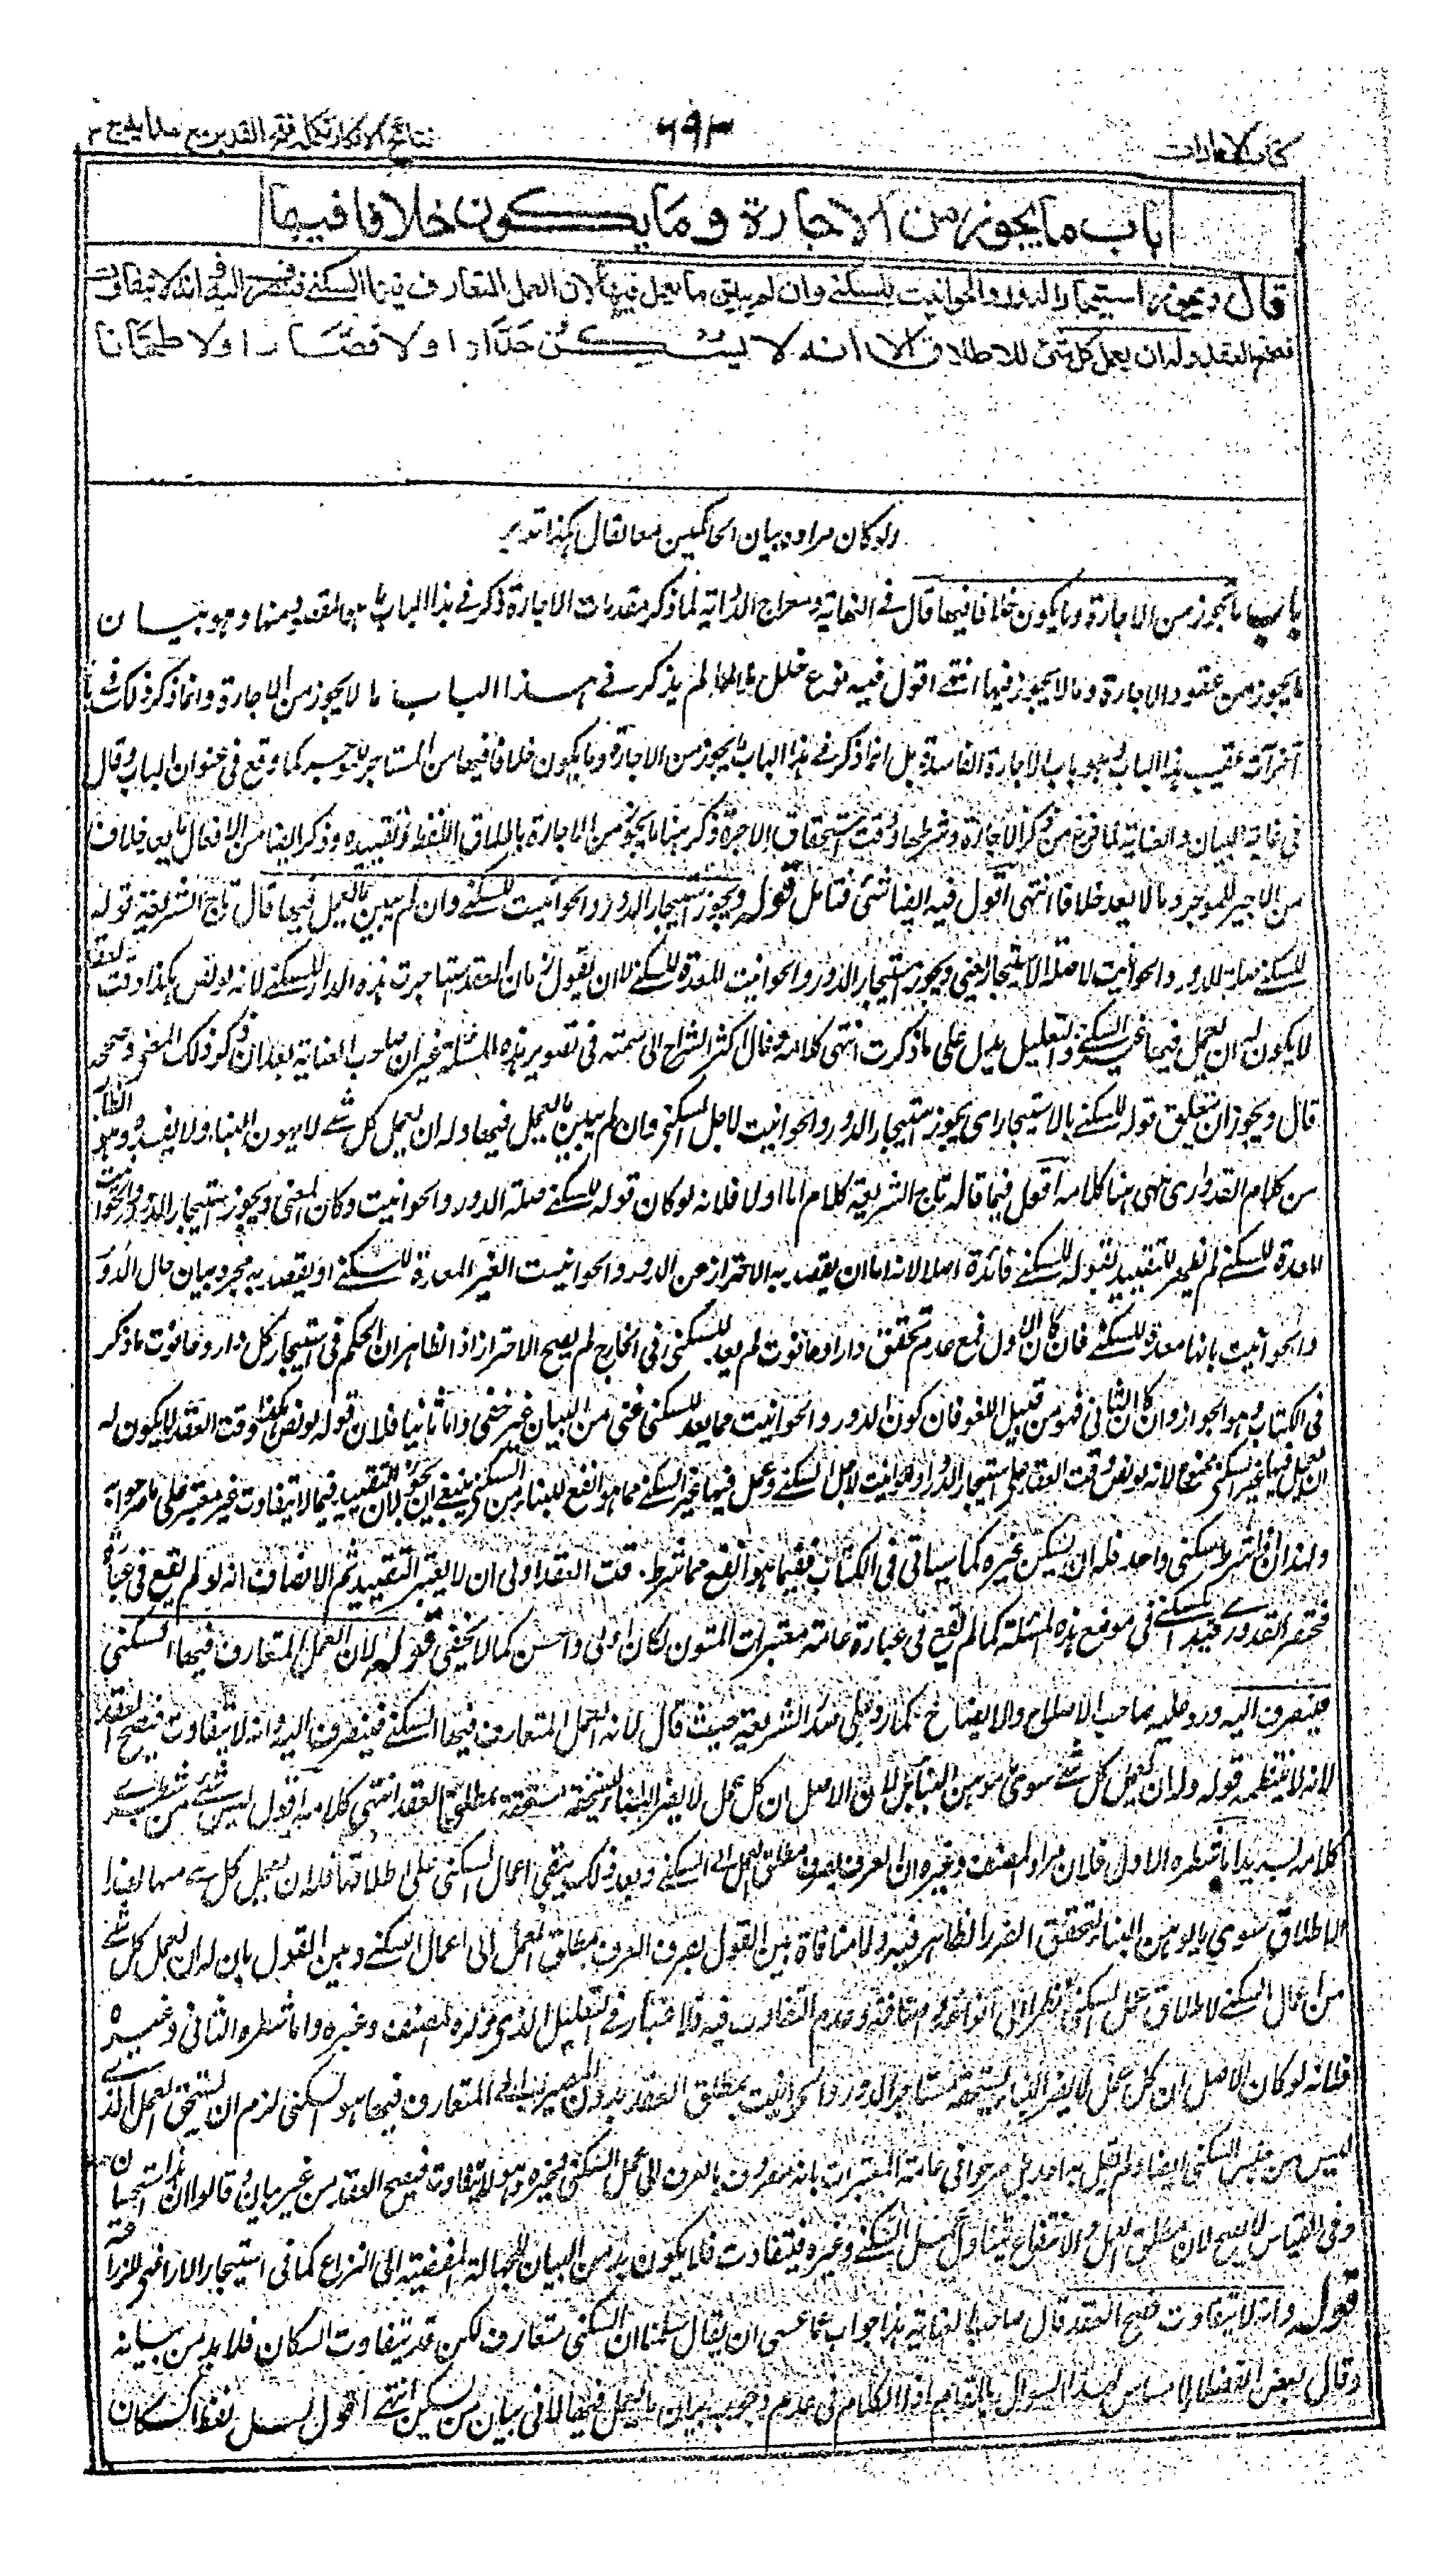 كتاب الاجارات
٦٩٣
نتائج الافكار تكملة فتح القدير مع هدايه ج ٣
باب ما يجوز من الاجارة وما يكون خلافا فيها
قال ويجوز استيجار الدور والحوانيت للسكنى وان لم يبين ما يعمل فيها لان العمل المتعارف فيها السكنى فينصرف اليه وانه لا يتفاوت
فصح العقد وله ان يعمل كل شئ للاطلاق الا انه لا يسكن حدّادا ولا قصّارا ولا طحّانا
ولو كان مراده بيان الحكمين معا لقال هكذا تدبر
باب ما يجوز من الاجارة وما يكون خلافا فيها قال في النهاية ومعراج الدراية لما ذكر مقدمات الاجارة ذكر في هذا الباب ما هو المقصد منها وهو بيان
ما يجوز من عقود الاجارة وما لا يجوز فيها انتهى اقول فيه نوع خلل لانه لم يذكر في هذا الباب ما لا يجوز من الاجارة وانما ذكر ذلك في باب
آخر آت عقيب هذا الباب وهو باب الاجارة الفاسدة بل انما ذكر في هذا الباب ما يجوز من الاجارة وما يكون خلافا فيها من المستاجر للموجر كما وقع في عنوان الباب وقال
في غاية البيان والعناية لما فرغ من ذكر الاجارة وشرطها ووقت استحقاق الاجرة ذكر هنا ما يجوز من الاجارة باطلاق اللفظ وتقييده وذكر ايضا من الافعال ما يعد خلافا
من الاجير للموجر وما لا يعد خلافا انتهى اقول فيه ايضا شئ فتامل قوله ويجوز استيجار الدور والحوانيت للسكنى وان لم يبين ما يعمل فيها قال تاج الشريعة قوله
للسكنى صلة للدور والحوانيت لا صلة الاستيجار يعني ويجوز استيجار الدور والحوانيت المعدة للسكنى لا ان يقول زمان العقد استاجرت هذه الدار للسكنى لانه لو نص هكذا وقت العقد
لا يكون له ان يعمل فيها غير السكنى والتعليل يدل على ما ذكرت انتهى كلامه ومال اكثر الشراح الى سمته في تقرير هذه المسئلة غير ان صاحب العناية بعد ان ذكر ذلك المعنى وصححه
قال ويجوز ان يتعلق قوله للسكنى بالاستيجار اى يجوز استيجار الدور والحوانيت لاجل السكنى وان لم يبين ما يعمل فيها وله ان يعمل كل شئ لا يوهن البناء ولا يفسده وهو الظاهر
من كلام القدوري الى هنا كلامه اقول فيما قاله تاج الشريعة كلام اما اولا فلانه لو كان قوله للسكنى صلة الدور والحوانيت وكان المعنى ويجوز استيجار الدور والحوانيت
المعدة للسكنى لم تظهر للتقييد بقوله للسكنى فائدة اصلا لانه اما ان يقصد به الاحتراز عن الدور والحوانيت الغير المعدة للسكنى او يقصد به مجرد بيان حال الدور
والحوانيت بانها معدة للسكنى فان كان الاول فمع عدم تحقق دار او حانوت لم يعد للسكنى في الخارج لم يصح الاحتراز اذ الظاهر ان الحكم في استيجار كل دار وحانوت ما ذكر
في الكتاب وهو الجواز وان كان الثاني فهو من قبيل اللغو فان كون الدور والحوانيت مما يعد للسكنى غني من البيان غير خفي واما ثانيا فلان قوله لو نص هكذا وقت العقد لا يكون له
ان يعمل فيها غير السكنى ممنوع لانه لو نص وقت العقد على استيجار الدور والحوانيت لاجل السكنى وعمل فيها غير السكنى مما هو انفع للبناء من السكنى ينبغي ان يجوز لان التقييد فيما لا يتفاوت غير معتبر على ما صرحوا به
ولهذا ان شرط سكنى واحد فله ان يسكن غيره كما سياتي في الكتاب ففيما هو انفع مما شرط وقت العقد اولى ان لا يعتبر التقييد ثم الانصاف انه لو لم يقع في عبارة
مختصر القدوري قيد للسكنى في موضع هذه المسئلة كما لم يقع في عبارة عامة معتبرات المتون لكان اولى واحسن كما لا يخفى قوله لان العمل المتعارف فيها السكنى
فينصرف اليه ورد عليه صاحب الاصلاح والايضاح كما رد على صدر الشريعة حيث قال لانه العمل المتعارف فيها السكنى فينصرف اليه وانه لا يتفاوت فيصح العقد
لانه لا ينتظمه قوله وله ان يعمل كل شئ سوى موهن البناء بل لان الاصل ان كل عمل لا يضر البناء يستحقه بمطلق العقد انتهى كلامه اقول ليس شئ من شطري
كلامه بسديد اما شطره الاول فلان مراد المصنف وغيره ان العرف يصرف مطلق العمل الى السكنى وبعد ذلك يبقى اعمال السكنى على اطلاقها فله ان يعمل كل شئ منها لهذا
الاطلاق سوى ما يوهن البناء لتحقق الضرر الظاهر فيه ولا منافاة بين القول بصرف العرف مطلق العمل الى اعمال السكنى وبين القول بان له ان يعمل كل شئ
من اعمال السكنى لاطلاق عمل السكنى نظرا الى انواعه واصنافه وعدم التفاوت فيه فلا غبار في التعليل الذي ذكره المصنف وغيره واما شطره الثاني وغيره
فلانه لو كان الاصل ان كل عمل لا يضر البناء يستحقه مستاجر الدور والحوانيت بمطلق العقد بدون المصير الى المتعارف فيها هو السكنى لزم ان يستحق العمل الذي
ليس من جنس السكنى ايضا ولم يقل به احد بل صرحوا في عامة المعتبرات بانه مصروف بالعرف الى عمل السكنى وغيره وهو لا يتفاوت فيصح العقد من غير بيان وقالوا ان هذا استحسان
وفي القياس لا يصح لان مطلق العمل والانتفاع يتناول عمل السكنى وغيره فيتفاوت فلا يكون بد من البيان للجهالة المفضية الى النزاع كما في استيجار الاراضي للزراعة
قوله وانه لا يتفاوت فصح العقد قال صاحب العناية هذا جواب عما عسى ان يقال سلمنا ان السكنى متعارف لكن قد يتفاوت السكان فلا بد من بيانه
وقال بعض الفضلاء لا مساس لهذا السوال بالمقام اذ الكلام في عدم وجوب بيان ما يعمل فيها لا في بيان من يسكن انتهى اقول لعل لفظ السكان